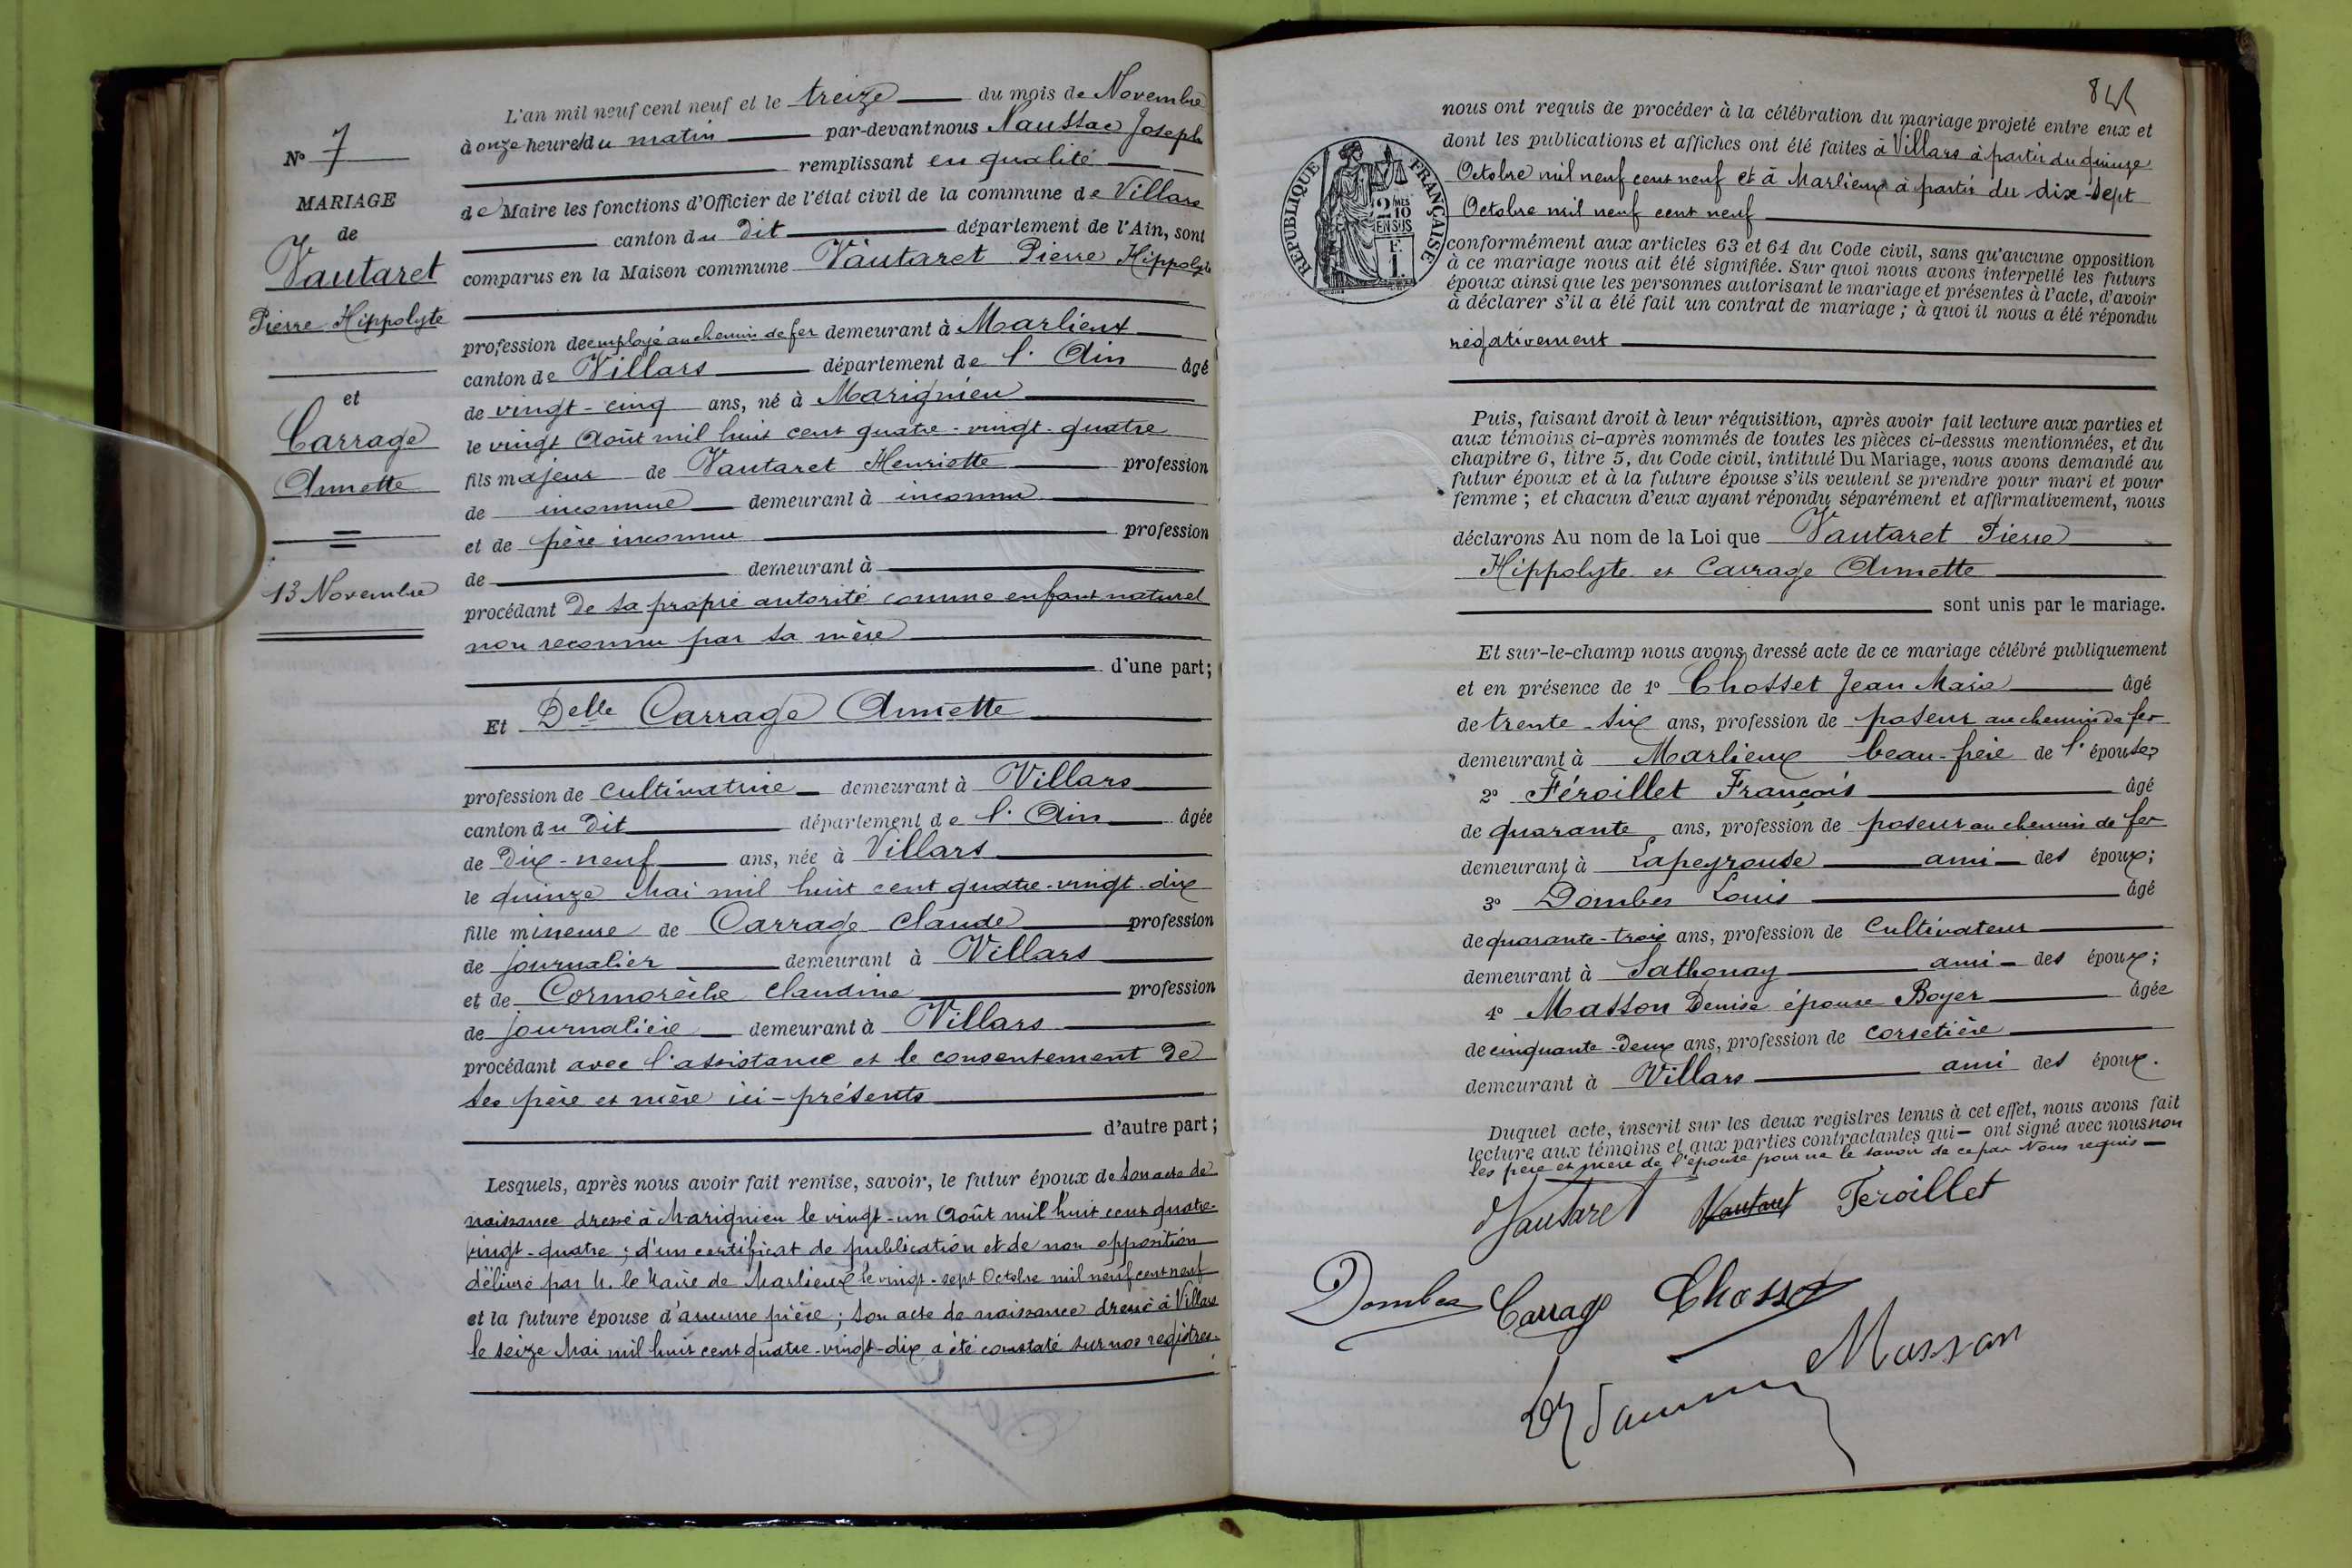 L'an mil neuf cent neuf et le treize du mois de Novembre
à onze heures du matin par-devant nous Naussac Joseph
remplissant en qualité
de Maire les fonctions d'Officier de l'état civil de la commune de Villars
canton du dit département de l'Ain, sont
comparus en la Maison commune Vautaret Pierre Hippolyte
profession de employé au chemin de fer demeurant à Marlieux
canton de Villars département de l'Ain âgé
de vingt-cinq ans, né à Marignieu
le vingt Août mil huit cent quatre-vingt-quatre
fils majeur de Vautaret Henriette profession
de inconnue demeurant à inconnu
et de père inconnu profession
de demeurant à
procédant de sa propre autorité comme enfant naturel
non reconnu par sa mère
d'une part;
Et Delle Carrage Annette
profession de cultivatrice demeurant à Villars
canton du dit département de l'Ain âgée
de Dix-neuf ans, née à Villars
le quinze Mai mil huit cent quatre-vingt-dix
fille mineure de Carrage Claude profession
de journalier demeurant à Villars
et de Cormorèche Claudine profession
de journalière demeurant à Villars
procédant avec l'assistance et le consentement de
ses père et mère ici-présents
d'autre part;
Lesquels, après nous avoir fait remise, savoir, le futur époux de son acte de
naissance dressé à Marignieu le vingt-un Août mil huit cent quatre-
vingt-quatre; d'un certificat de publication et de non opposition
délivré par M. le Maire de Marlieux le vingt-sept Octobre mil neuf cent neuf
et la future épouse d'aucune pièce; son acte de naissance dressé à Villars
le seize Mai mil huit cent quatre-vingt-dix a été constaté sur nos registres.
N° 7
MARIAGE
de
Vautaret
Pierre Hippolyte
et
Carrage
Annette
13 Novembre
nous ont requis de procéder à la célébration du mariage projeté entre eux et
dont les publications et affiches ont été faites à Villars à partir du quinze
Octobre mil neuf cent neuf et à Marlieux à partir du dix-sept
Octobre mil neuf cent neuf
conformément aux articles 63 et 64 du Code civil, sans qu'aucune opposition
à ce mariage nous ait été signifiée. Sur quoi nous avons interpellé les futurs
époux ainsi que les personnes autorisant le mariage et présentes à l'acte, d'avoir
à déclarer s'il a été fait un contrat de mariage; à quoi il nous a été répondu
négativement
Puis, faisant droit à leur réquisition, après avoir fait lecture aux parties et
aux témoins ci-après nommés de toutes les pièces ci-dessus mentionnées, et du
chapitre 6, titre 5, du Code civil, intitulé Du Mariage, nous avons demandé au
futur époux et à la future épouse s'ils veulent se prendre pour mari et pour
femme; et chacun d'eux ayant répondu séparément et affirmativement, nous
déclarons Au nom de la Loi que Vautaret Pierre
Hippolyte et Carrage Annette
sont unis par le mariage.
Et sur-le-champ nous avons dressé acte de ce mariage célébré publiquement
et en présence de 1° Chosset Jean Marie âgé
de trente-six ans, profession de poseur au chemin de fer
demeurant à Marlieux beau-frère de l'épouse;
2° Féroillet François âgé
de quarante ans, profession de poseur au chemin de fer
demeurant à Lapeyrouse ami des époux;
3° Dombes Louis âgé
de quarante-trois ans, profession de Cultivateur
demeurant à Sathonay ami des époux;
4° Masson Denise épouse Boyer âgée
de cinquante-deux ans, profession de corsetière
demeurant à Villars ami des époux.
Duquel acte, inscrit sur les deux registres tenus à cet effet, nous avons fait
lecture aux témoins et aux parties contractantes qui ont signé avec nous non
les père et mère de l'épouse pour ne le savoir de ce par Nous requis
Vautaret Vautaret Feroillet
Dombes Carrage Chosset
Masson
RÉPUBLIQUE FRANÇAISE
2 MES
10
EN SUS
F.
1.